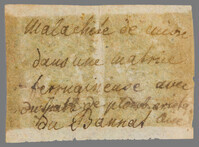 Malachite de cuivre
dans une matrice
ferrugineuse avec
du
du Bannat